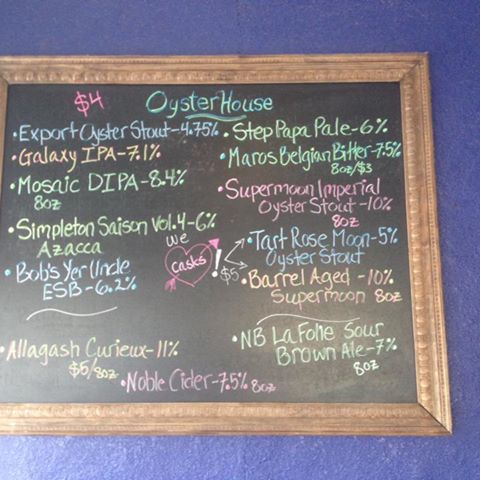 $4
OysterHouse
•Export Oyster Stout-4.75%
•Galaxy IPA-7.1%
•Mosaic DIPA-8.4%
8oz
•Simpleton Saison Vol.4-6%
Azacca
•Bob's Yer Uncle
ESB-6.2%
•Step Papa Pale-6%
•Maros Belgian Bitter-7.5%
8oz/$3
•Supermoon Imperial
Oyster Stout-10%
8oz
We
casks
!
$5
•Tart Rose Moon-5%
Oyster Stout
•Barrel Aged -10%
Supermoon 8oz
•Allagash Curieux-11%
$5/8oz
•Noble Cider-7.5% 8oz
•NB La Folie Sour
Brown Ale-7%
8oz